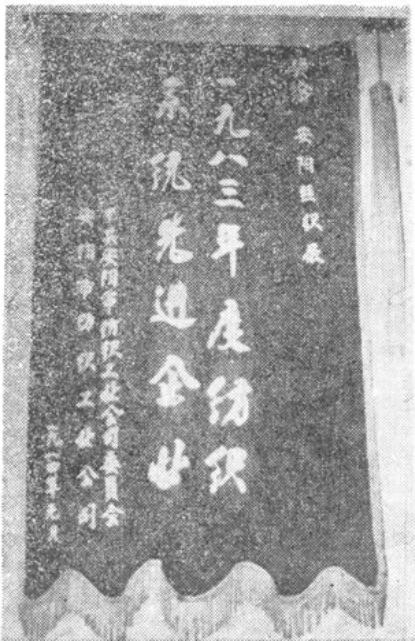 给 安阳织厂
一九八三年度纺织
系统先进企业
中共安阳市纺织工业公司委员会
安阳市纺织工业公司
一九八四年元月